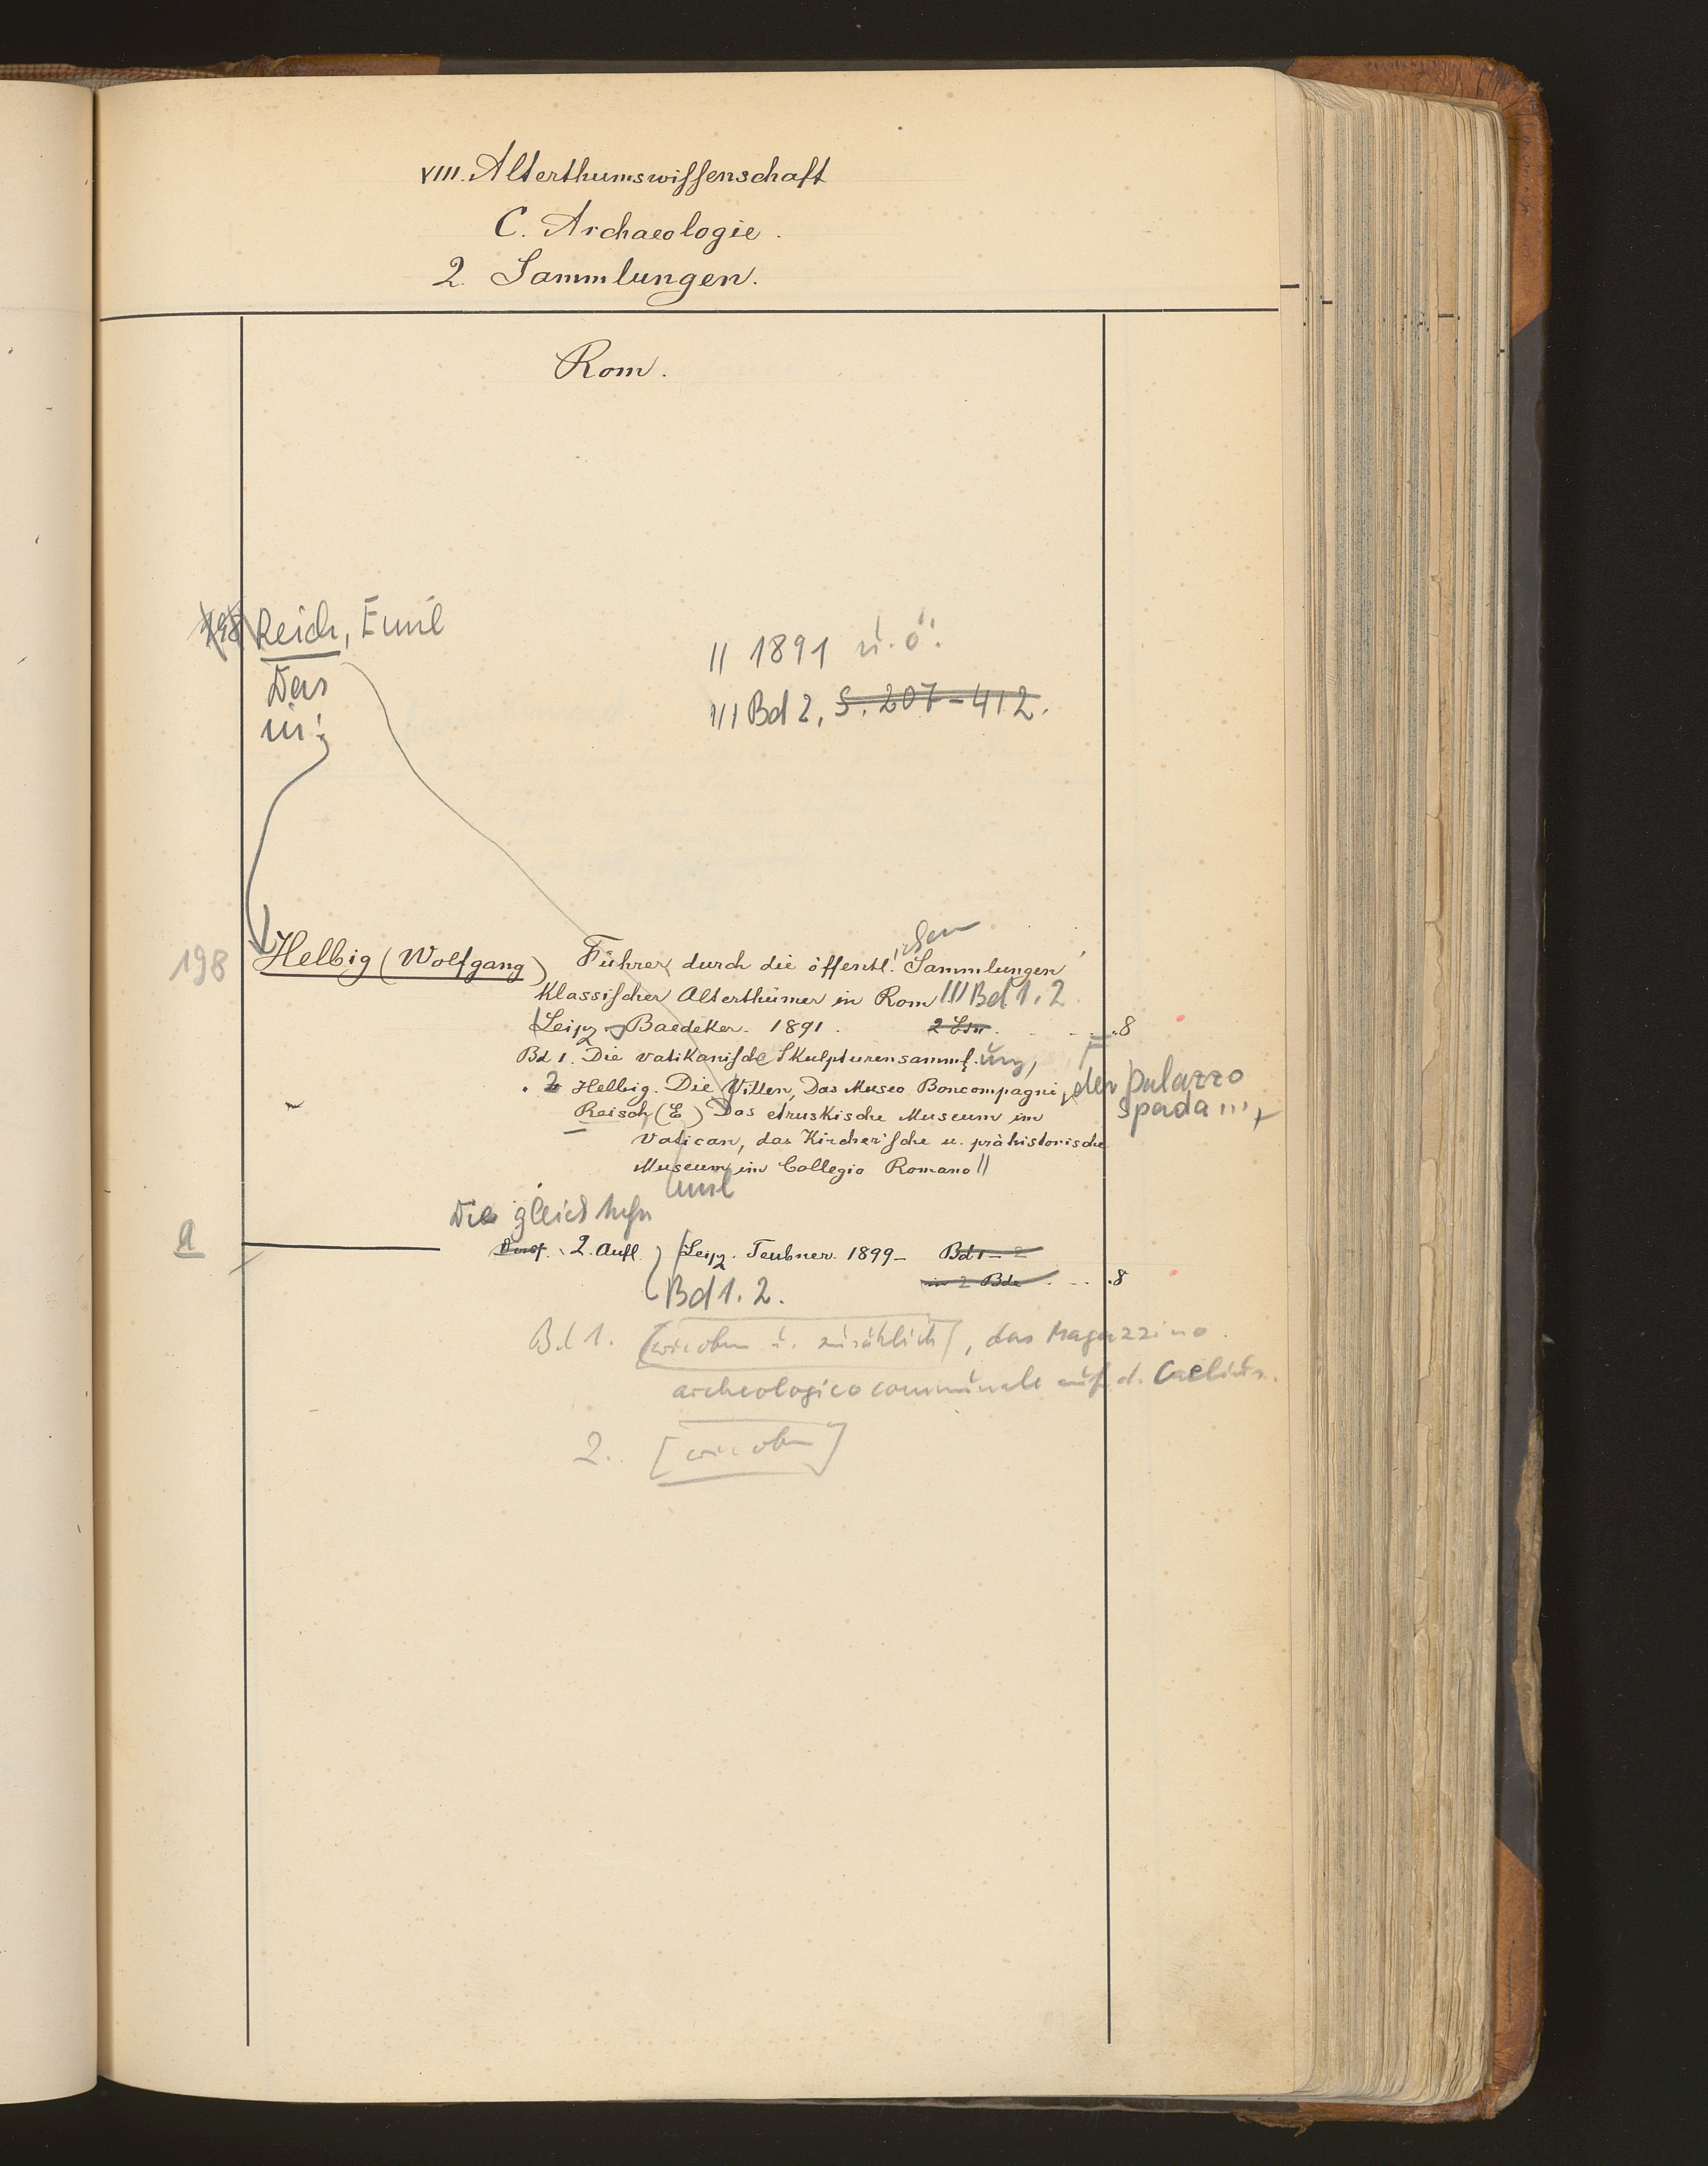 VIII. Alterthumswissenschaft
C. Archaeologie.
2. Sammlungen.
Rom.
198 Reich, Emil
Das
in:
|| 1891 u. ö.
||| Bd 2, S. 207-412.
198 Helbig (Wolfgang) Führer durch die öffentl. Sammlungen
klassischer Alterthümer in Rom ||| Bd 1. 2
Leipz Baedeker. 1891. 8
Bd 1. Die vatikanische Skulpturensamml. ung,
2 Helbig. Die Villen, Das Museo Boncompagni, der Palazzo
Spada
Reisch (E) Das etruskische Museum im
Vatican, das Kircher'sche u. prähistorische
Museum im Collegio Romano ||
Emil
Die
a
2. Aufl. Leipz. Teubner. 1899- Bd 1-2
in 2 Bde 8
Bd 1. 2.
Bd 1. [wie oben u. zusätzlich], das Magazzino
archeologico communale auf d. Caelius.
2. [wie oben]